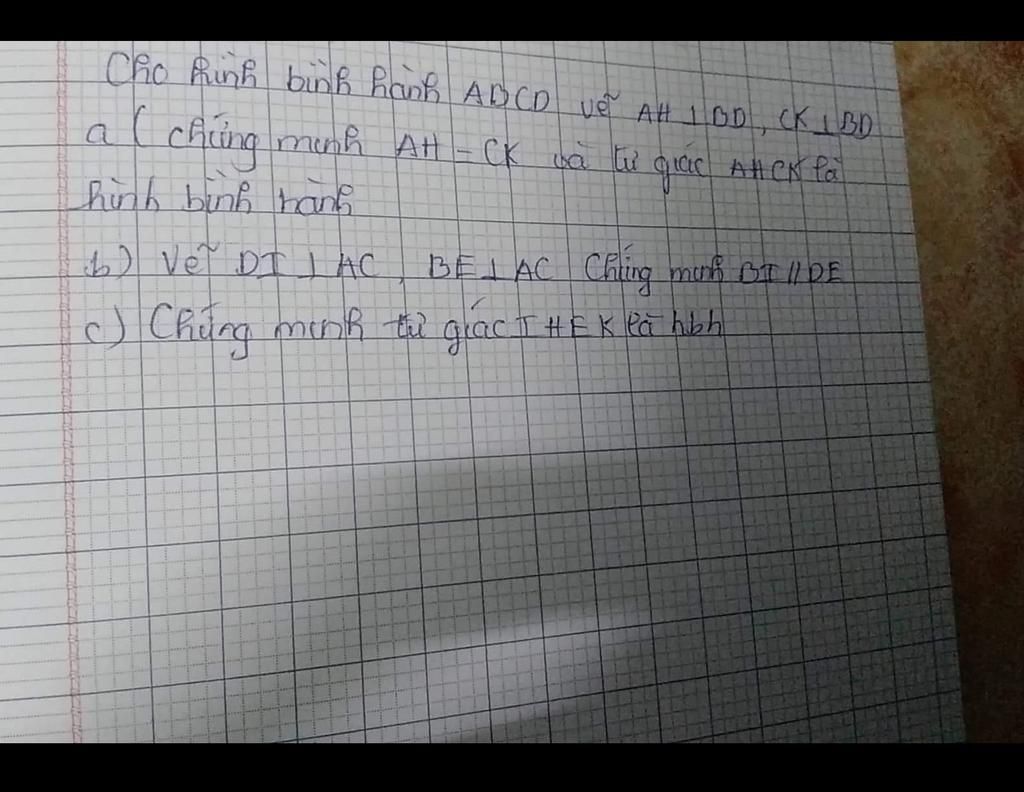 Cho hình bình hành ABCD vẽ AH ⊥ BD, CK ⊥ BD
a ( chứng minh AH = CK và tứ giác AHCK là
hình bình hành
b) Vẽ DI ⊥ AC, BE ⊥ AC Chứng minh BI // DE
c) Chứng minh tứ giác I H E K là hbh